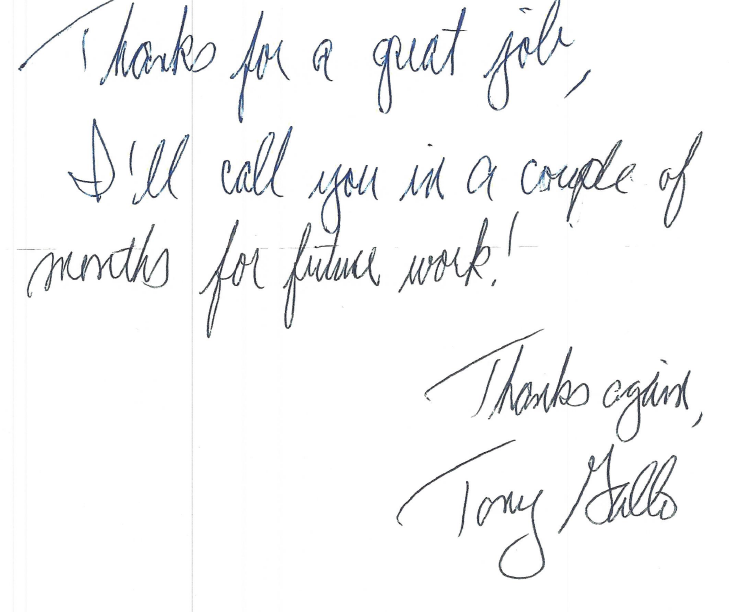 Thanks for a great job,
I'll call you in a couple of
months for future work!
Thanks again,
Tony Gallo